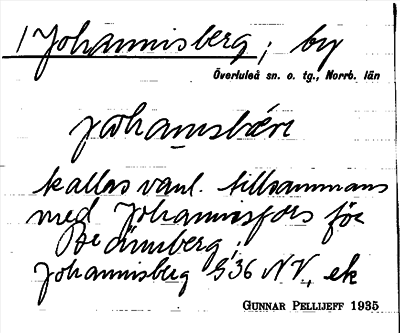 1 Johannisberg; by
Överluleå sn. o. tg., Norrb. län
johannsbæri
kallas vanl. tillsammans
med Johannisfors för
Johannisberg 936 NV, ek
GUNNAR PELLIJEFF 1935